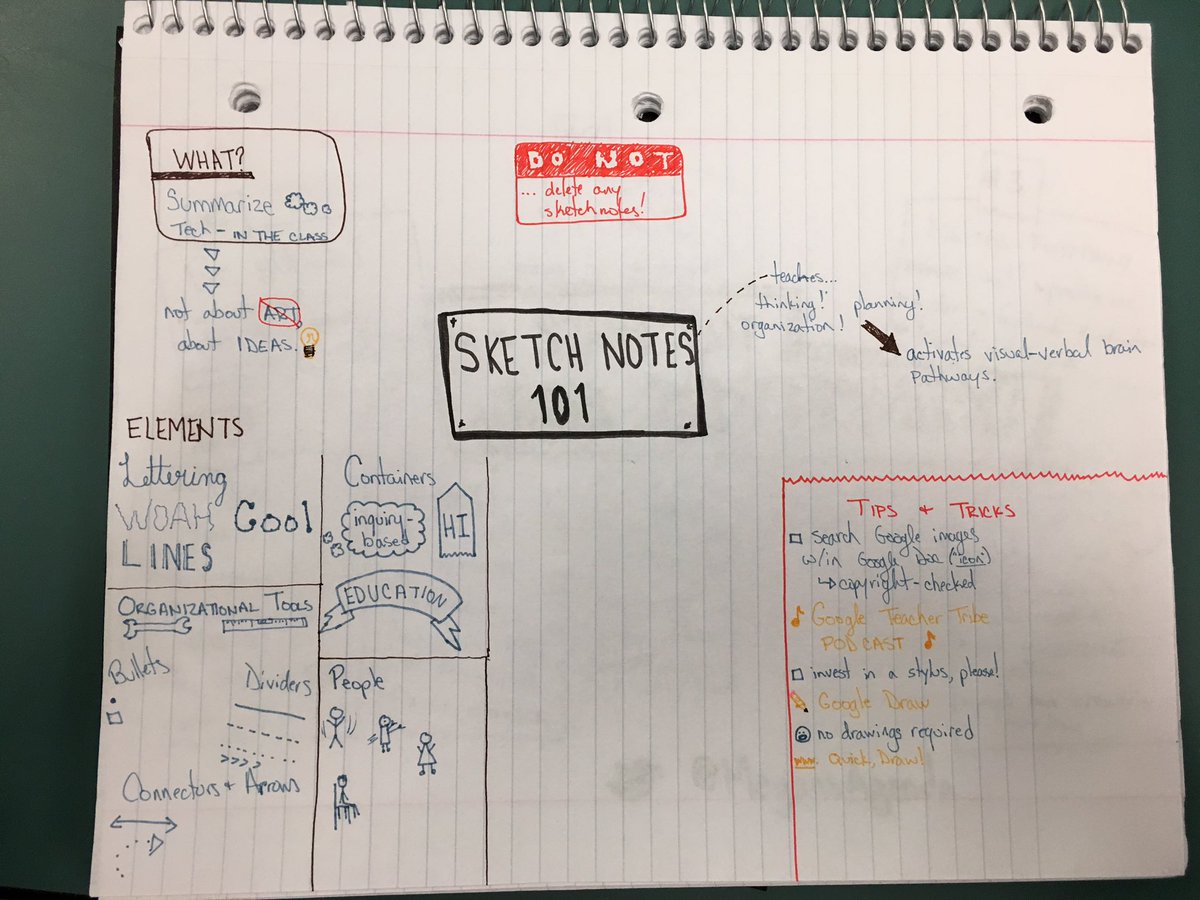 WHAT?
Summarize
Tech - IN THE CLASS
not about ART,
about IDEAS.
DO NOT
... delete any
sketchnotes!
SKETCH NOTES
101
teaches...
thinking! planning!
organization!
activates visual-verbal brain
pathways.
ELEMENTS
Lettering
WOAH Cool
LINES
Containers
inquiry-
based
HI
EDUCATION
ORGANIZATIONAL TOOLS
Bullets
Dividers
Connectors + Arrows
People
TIPS + TRICKS
search Google images
w/in Google Doc ("icon")
copyright-checked
Google Teacher Tribe
PODCAST
invest in a stylus, please!
Google Draw
no drawings required
www. Quick, Draw!